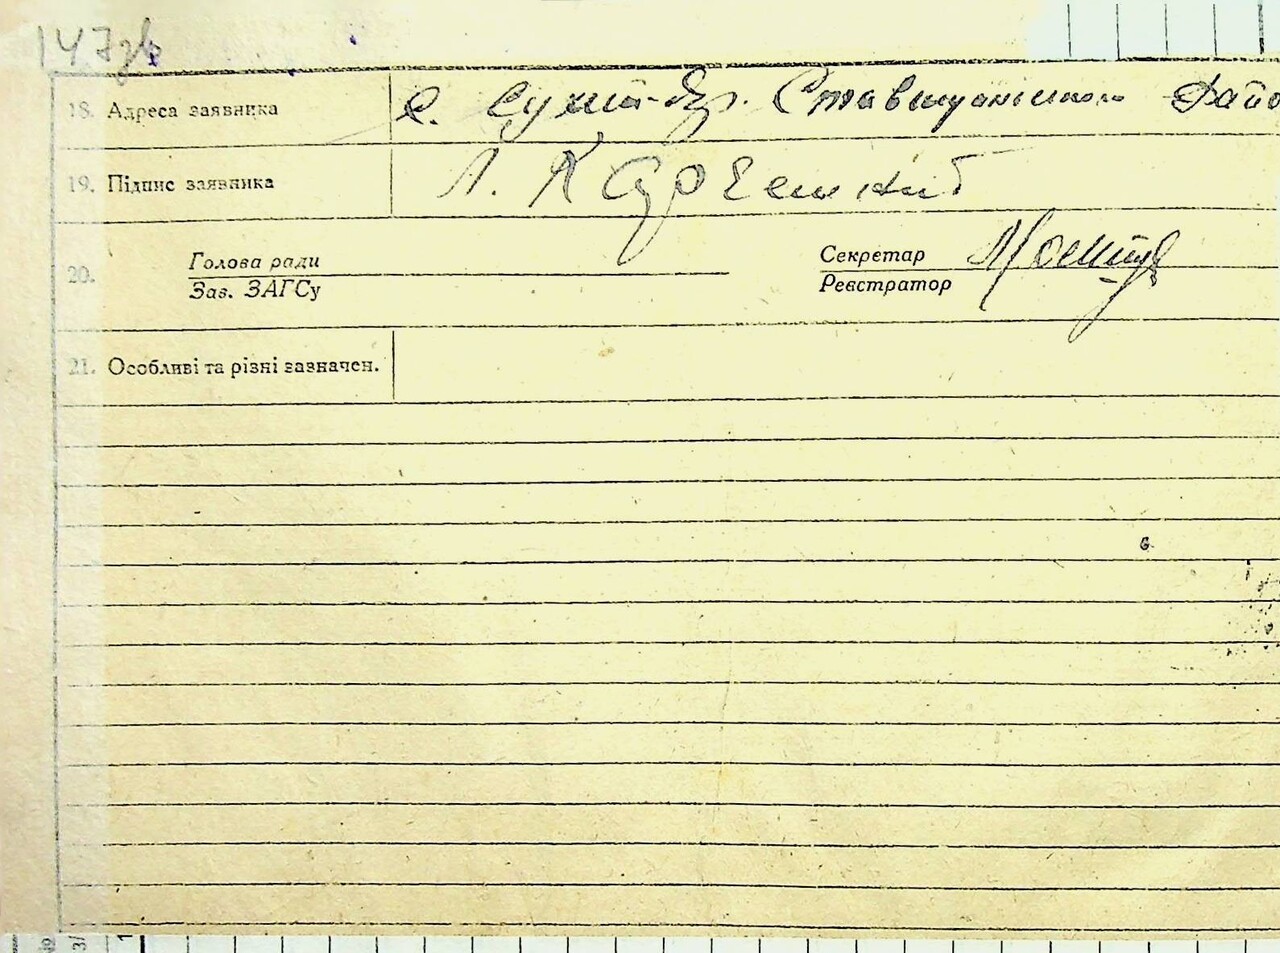 147зв
18. Адреса заявника с. Сухий-Яр. Ставищанського Райо
19. Підпис заявника Л.
20. Голова ради Секретар
Зав. ЗАГСу Реєстратор
21. Особливі та різні зазначен.